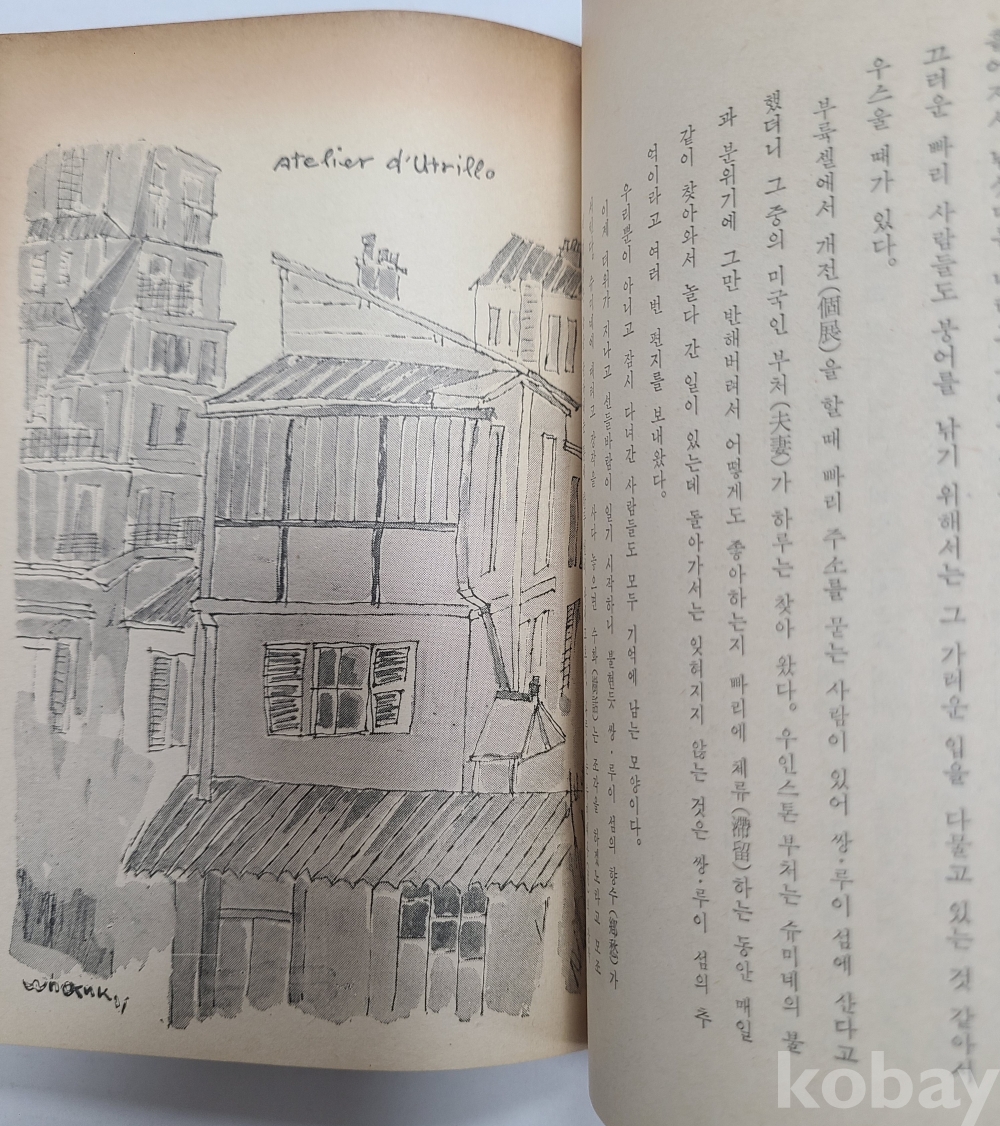 atelier d'Utrillo
whanki
끄러운 빠리 사람들도 붕어를 낚기 위해서는 그 가려운 입을 다물고 있는 것 같아서
우스울 때가 있다.
부륙셀에서 개전(個展)을 할 때 빠리 주소를 묻는 사람이 있어 쌍·루이 섬에 산다고
했더니 그 중의 미국인 부처(夫妻)가 하루는 찾아 왔다. 우인스톤 부처는 슈미네의 불
과 분위기에 그만 반해버려서 어떻게도 좋아하는지 빠리에 체류(滯留)하는 동안 매일
같이 찾아와서 놀다 간 일이 있는데 돌아가서는 잊혀지지 않는 것은 쌍·루이 섬의 추
억이라고 여러 번 편지를 보내왔다.
우리뿐이 아니고 잠시 다녀간 사람들도 모두 기억에 남는 모양이다.
이제 더위가 지나고 선들바람이 일기 시작하니 불현듯 쌍·루이 섬의 향수(鄕愁)가
장작을 사다 놓으면 수화(樹話)는 조각을 하겠노라고
kobay